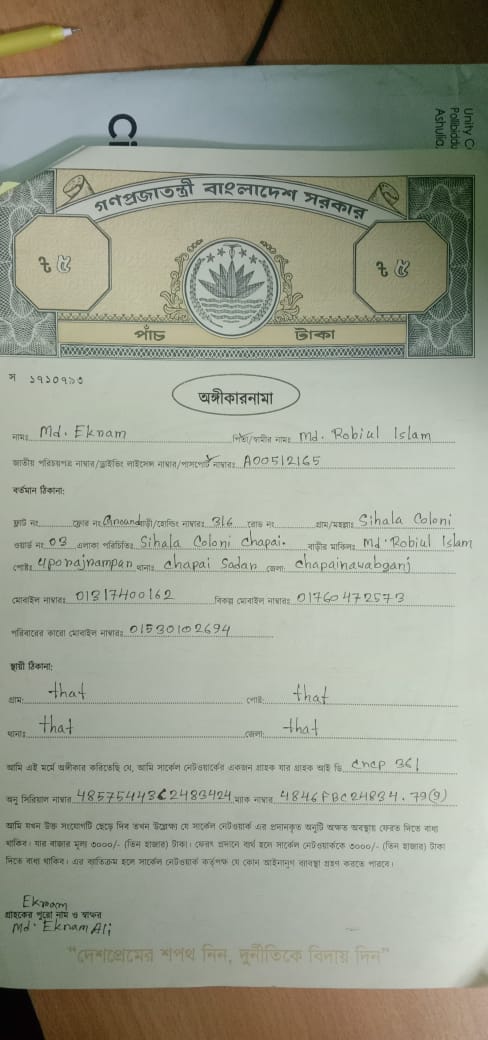 Unity C
Pollibiddu
Ashulia,
Ci
গণপ্রজাতন্ত্রী বাংলাদেশ সরকার
৳ ৫ ৳ ৫
পাঁচ টাকা
স ১৭১০৭১৩
অঙ্গীকারনামা
নামঃ Md. Eknam পিতা/স্বামীর নামঃ md. Robiul Islam
জাতীয় পরিচয়পত্র নাম্বার/ড্রাইভিং লাইসেন্স নাম্বার/পাসপোর্ট নাম্বারঃ A00512165
বর্তমান ঠিকানা:
ফ্ল্যাট নং ফ্লোর নং Ground বাড়ী/হোল্ডিং নাম্বারঃ 316 রোড নং গ্রাম/মহল্লাঃ Sihala Coloni
ওয়ার্ড নং 03 এলাকা পরিচিতিঃ Sihala Coloni Chapai. বাড়ীর মালিকঃ Md. Robiul Islam
পোষ্টঃ uporajrampan থানাঃ chapai Sadan জেলা: chapainawabganj
মোবাইল নাম্বারঃ 01317400162 বিকল্প মোবাইল নাম্বারঃ 01760472573
পরিবারের কারো মোবাইল নাম্বারঃ 01530102694
স্থায়ী ঠিকানা:
গ্রাম: that পোষ্ট: that
থানাঃ that জেলা: that
আমি এই মর্মে অঙ্গীকার করিতেছি যে, আমি সার্কেল নেটওয়ার্কের একজন গ্রাহক যার গ্রাহক আই ডি cncp 361
অনু সিরিয়াল নাম্বার 485754443C2483424 ম্যাক নাম্বার 4846FBC24834.79(9)
আমি যখন উক্ত সংযোগটি ছেড়ে দিব তখন উল্লেখ্য যে সার্কেল নেটওয়ার্ক এর প্রদানকৃত অনুটি অক্ষত অবস্থায় ফেরত দিতে বাধ্য
থাকিব। যার বাজার মূল্য ৩০০০/- (তিন হাজার) টাকা। ফেরৎ প্রদানে ব্যর্থ হলে সার্কেল নেটওয়ার্ককে ৩০০০/- (তিন হাজার) টাকা
দিতে বাধ্য থাকিব। এর ব্যতিক্রম হলে সার্কেল নেটওয়ার্ক কর্তৃপক্ষ যে কোন আইনানুগ ব্যবস্থা গ্রহণ করতে পারবে।
Eknam
গ্রাহকের পুরো নাম ও স্বাক্ষর
Md. Eknam Ali
"দেশপ্রেমের শপথ নিন, দুর্নীতিকে বিদায় দিন"